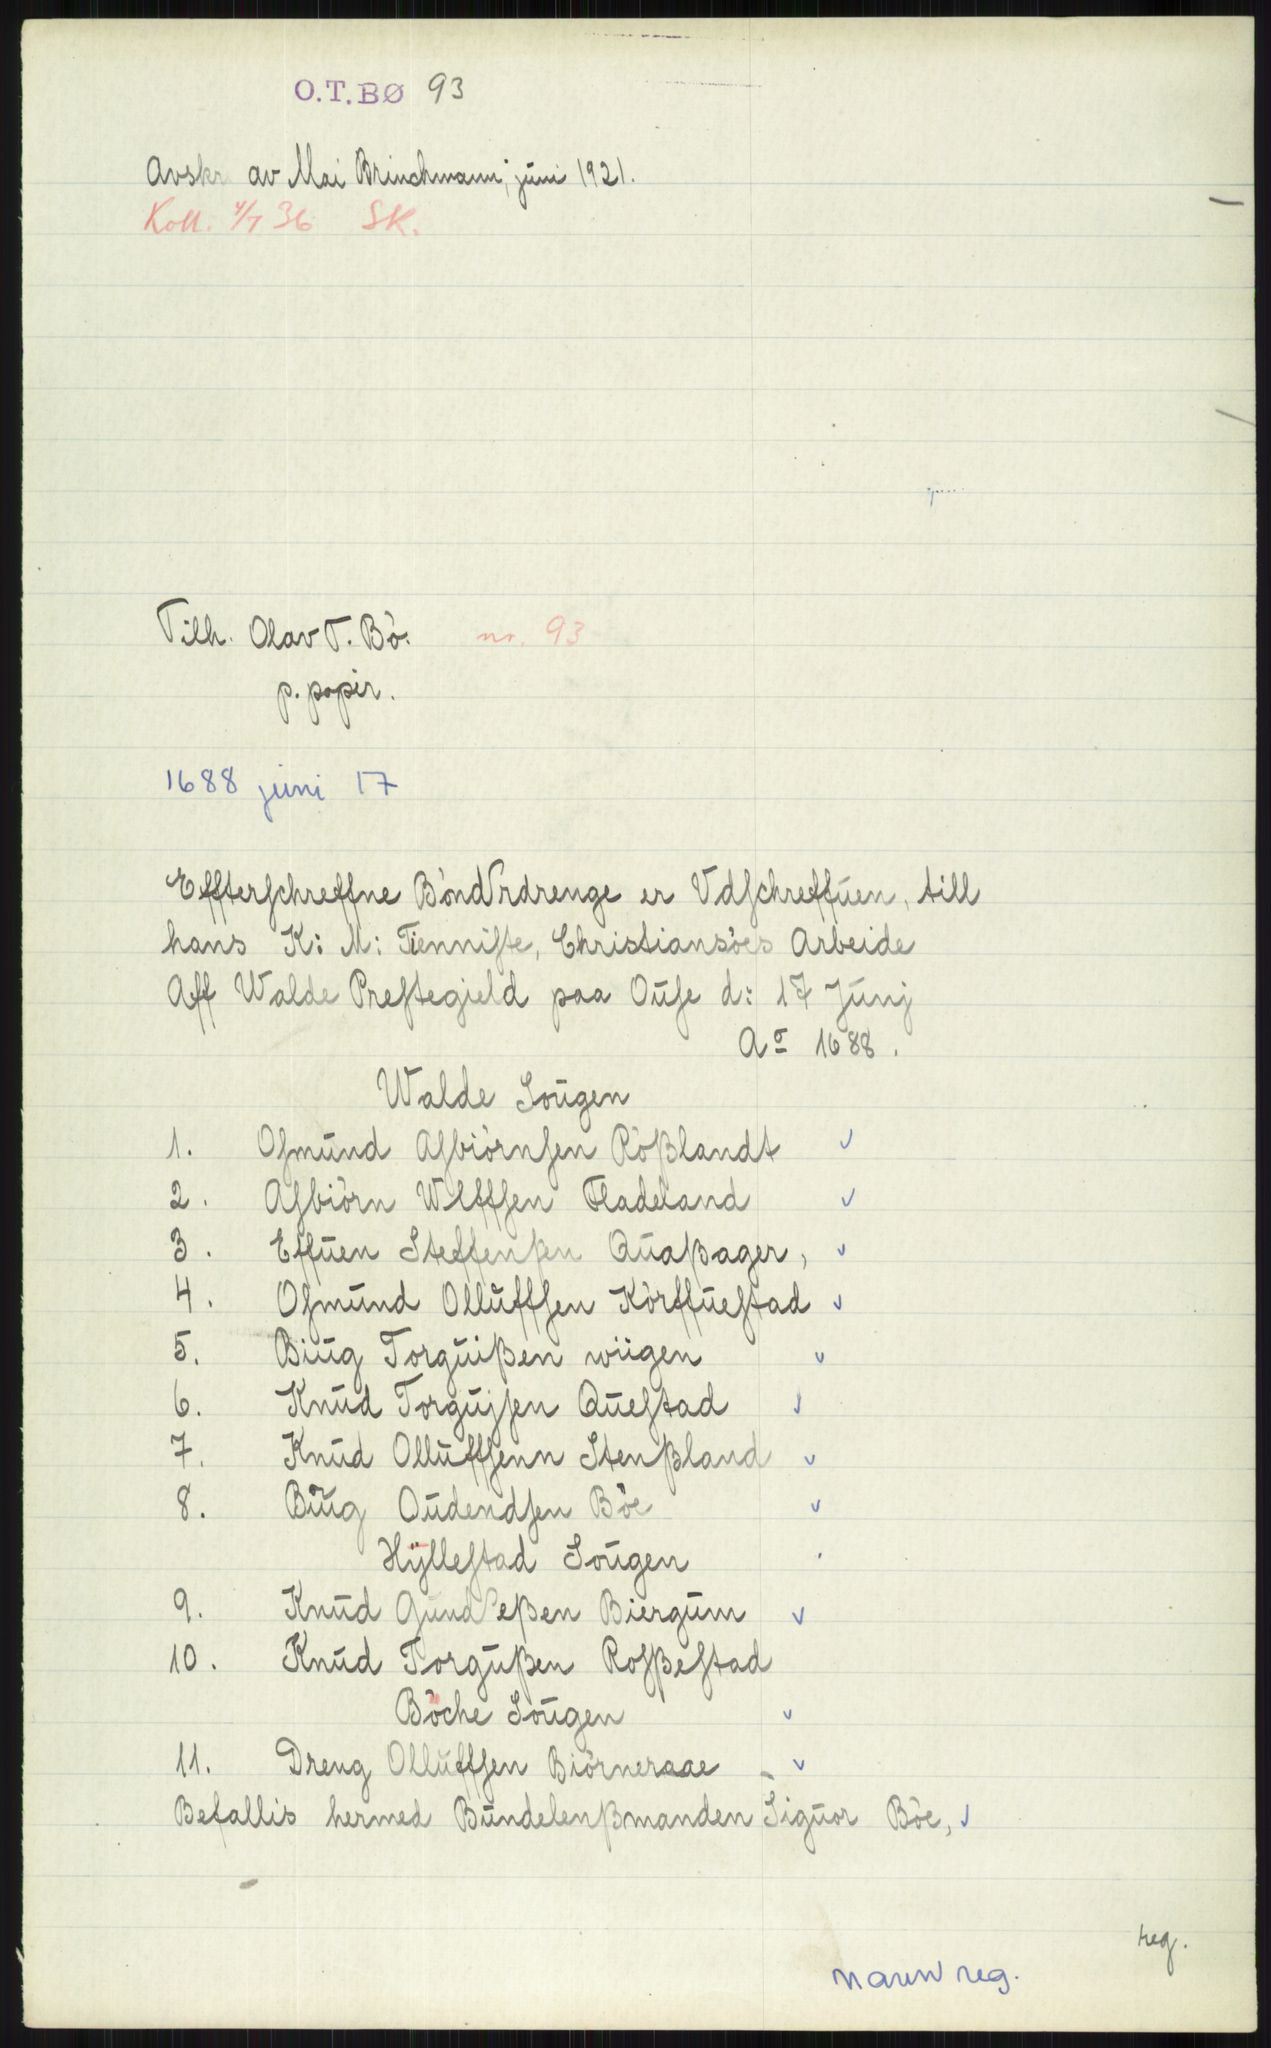 O.T.BØ 93
Avskr av Mai Brinchmann, juni 1921.
Koll. 4/7 36 SK.
Tilh. Olav T. Bö. nr. 93
p. papir.
1688 juni 17
Effterschreffne Böndrdrenge er Vdschreffuen, till
hans K: M: Tienniste, Christiansöes Arbeide
Aff Walde Prestegield paa Ouse d: 17 Junj
Ao 1688.
Walde Sougen
1. Osmund Asbiörnsen Rößlandt
2. Asbiörn Wlffsen Fladeland
3. Effuen Steffenßen Quaßager,
4. Osmund Olluffsen Körffuestad
5. Biug Torguißen wiigen
6. Knud Torgujsen Questad
7. Knud Olluffsenn Stenßland
8. Biug Oudendsen Böe
Hÿllestad Sougen
9. Knud Gundeßen Biergum
10. Knud Torgußen Rosßestad
Böche Sougen
11. Dreng Olluffsen Biörneraae
Befallis hermed Bundelenßmanden Siguor Böe,
reg.
navn reg.